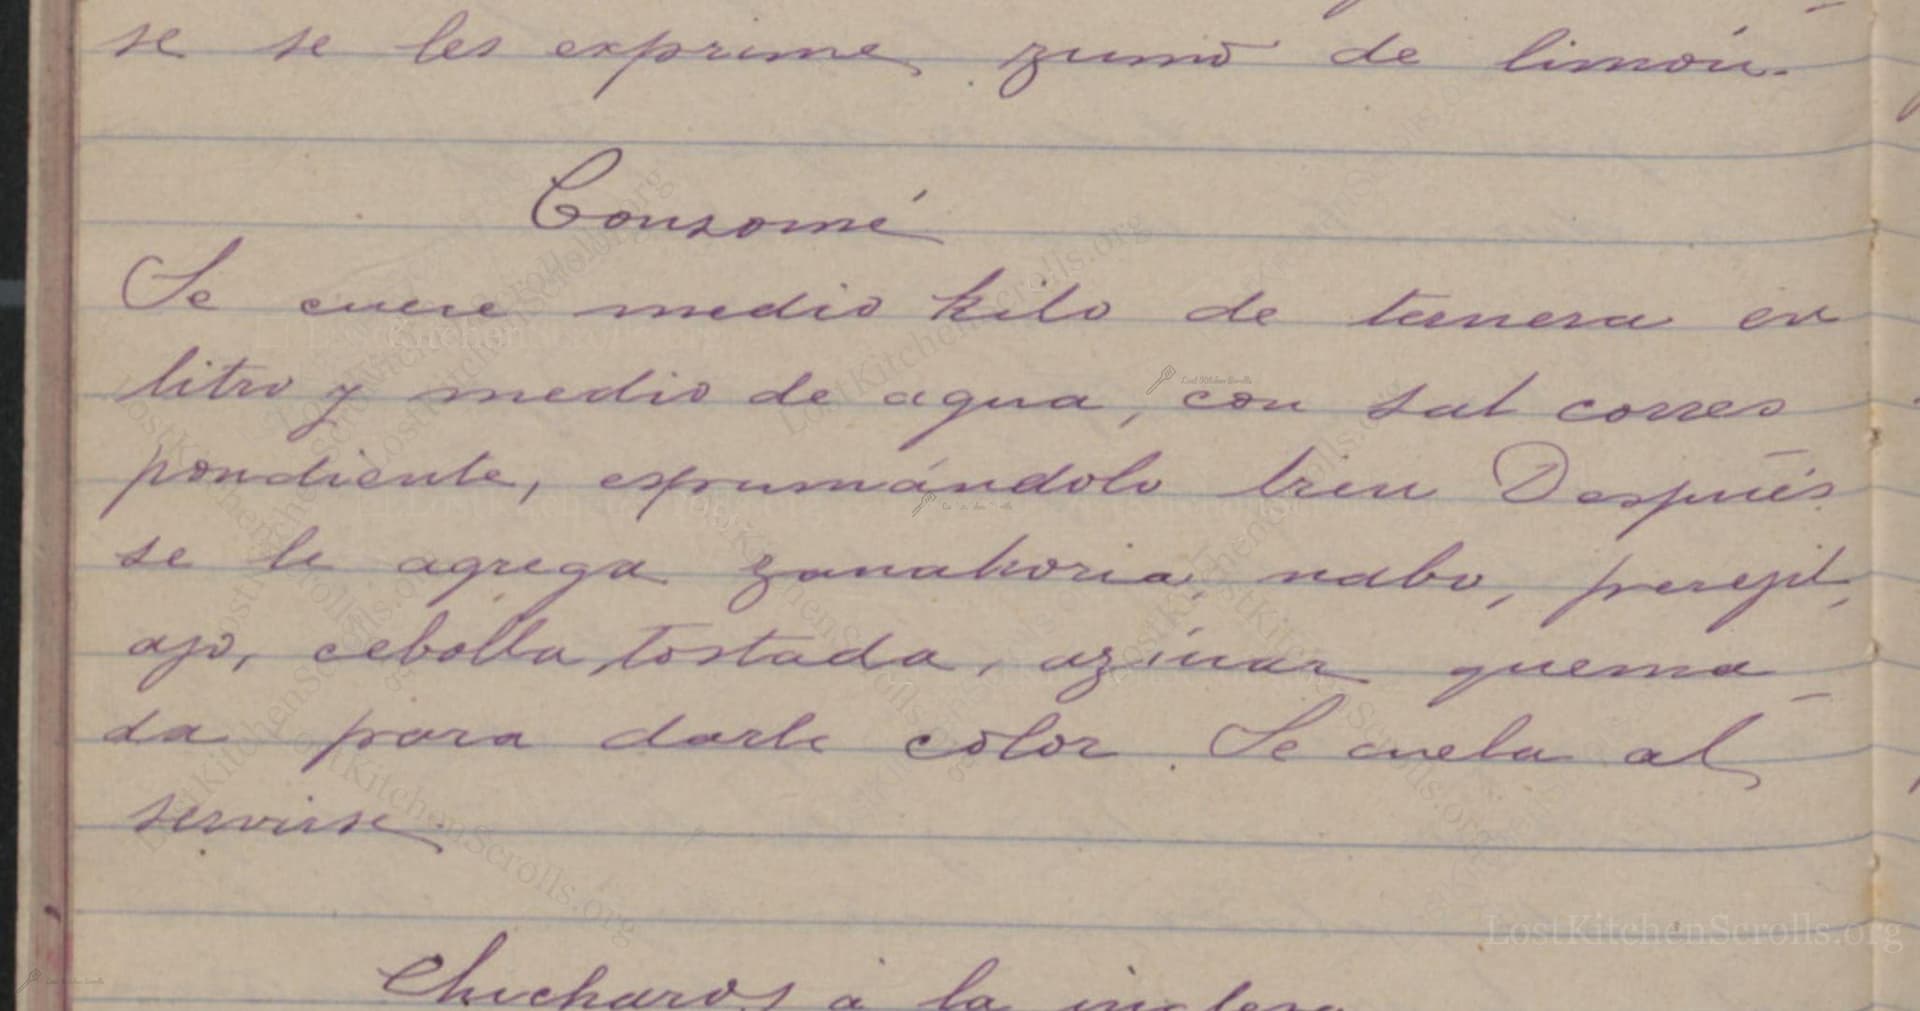 se se les exprime zumo de limón.
Consomé
Se cuece medio kilo de ternera en
litro y medio de agua, con sal corres
pondiente, espumándolo bien Después
se le agrega zanahoria, nabo, perejil,
ajo, cebolla tostada, azúcar quema
da para darle color. Se cuela al
servirse.
Chicharos à la inglesa
LostKitchenScrolls.org